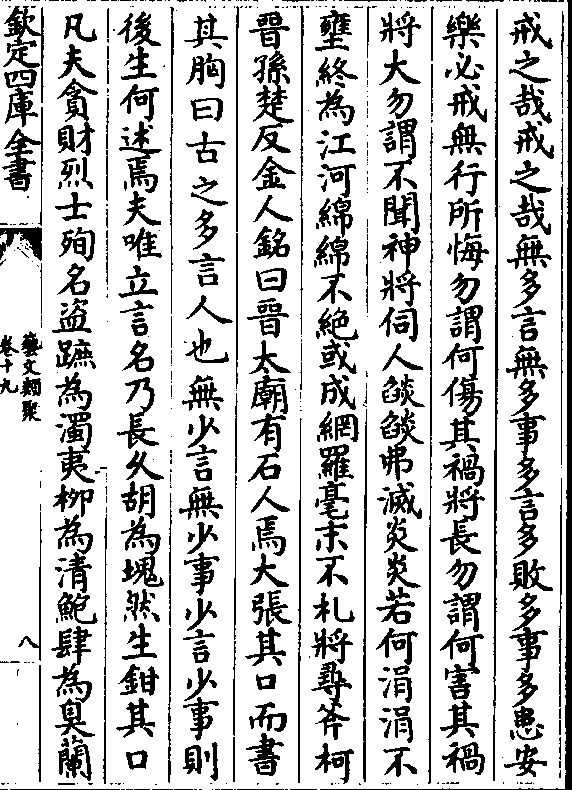 戒之哉戒之哉無多言無多事多言多敗多事多患安
樂必戒無行所悔勿謂何傷其禍將長勿謂何害其禍
將大勿謂不聞神將伺人燄燄弗滅炎炎若何涓涓不
壅終為江河綿綿不絶或成網羅毫末不札將尋斧柯
晉孫楚反金人銘曰晉太廟有石人焉大張其口而書
其胸曰古之多言人也無少言無少事少言少事則
後生何述焉夫唯立言名乃長久胡為塊然生鉗其口
凡夫貪財烈士殉名盜蹠為濁夷栁為清鮑肆為臭蘭
欽定四庫全書
藝文類聚
卷十九
八